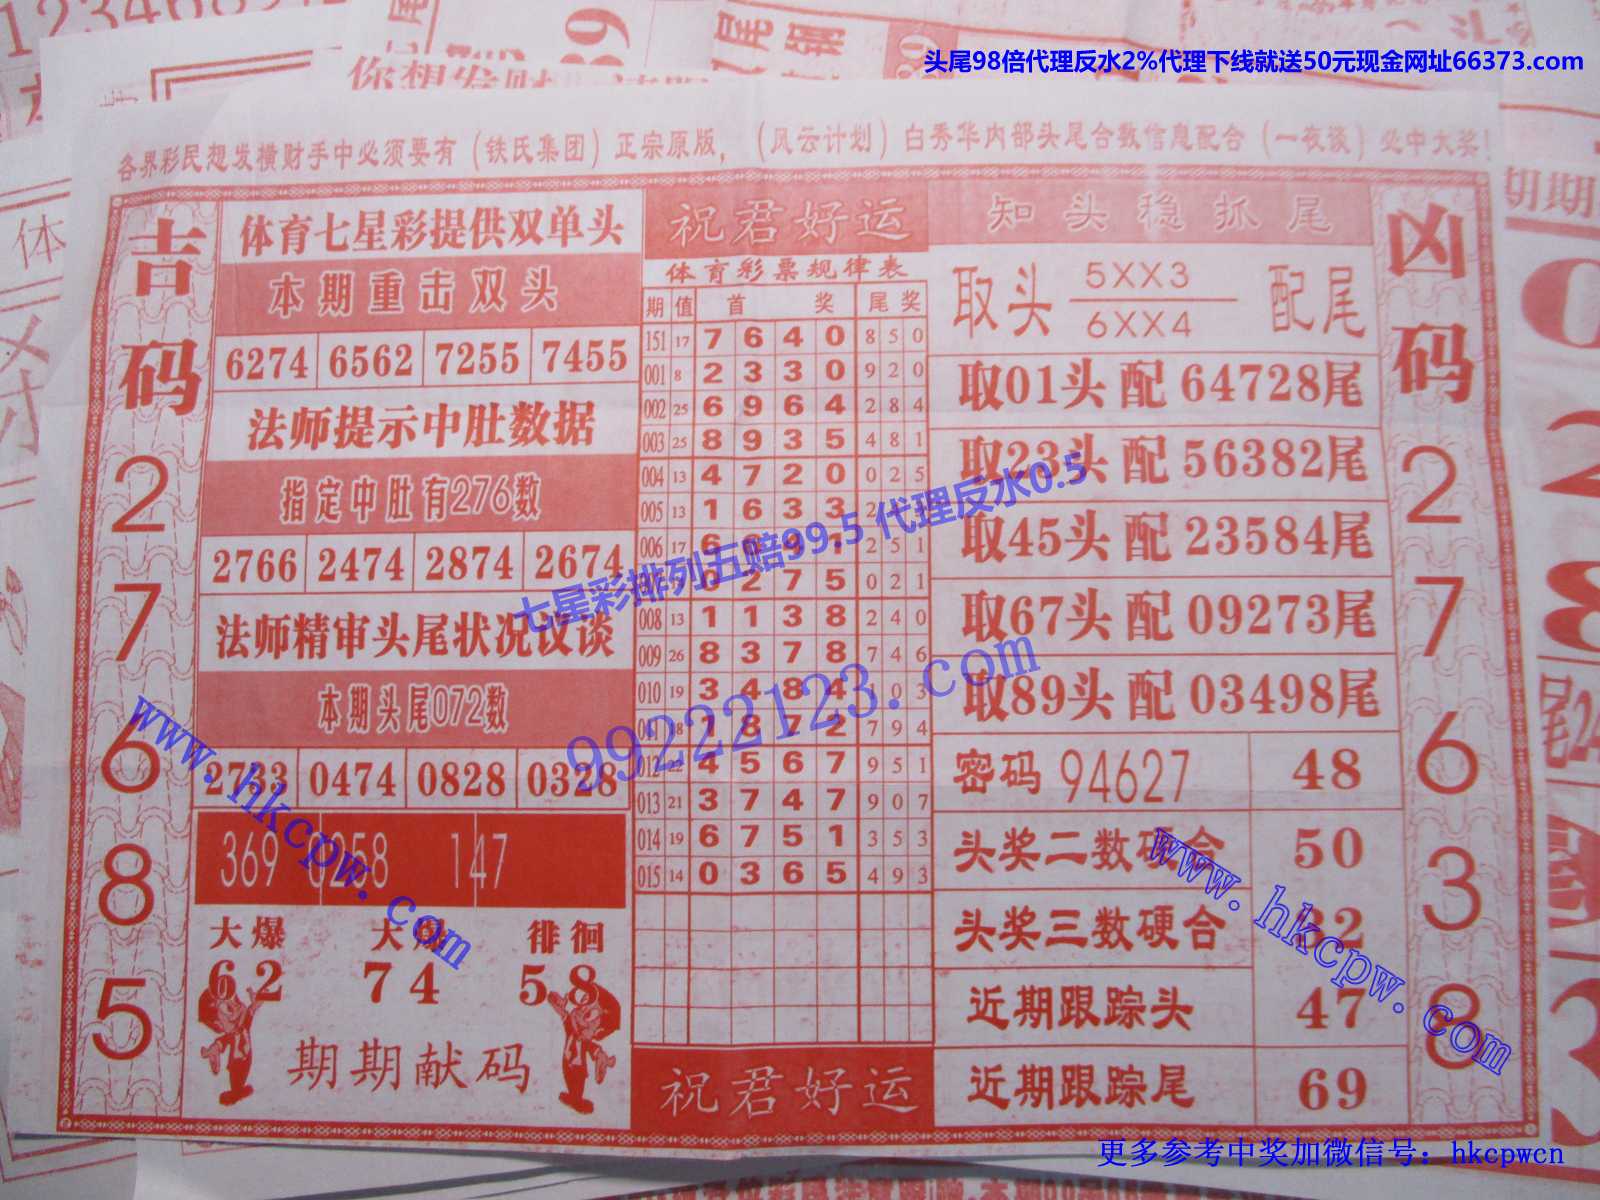 头尾98倍代理反水2%代理下线就送50元现金网址66373.com
各界彩民想发横财手中必须要有（铁氏集团）正宗原版，（风云计划）白秀华内部头尾合数信息配合（一夜谈）必中大奖！
吉码
2
7
6
8
5
体育七星彩提供双单头
本期重击双头
6274 6562 7255 7455
法师提示中肚数据
指定中肚有276数
2766 2474 2874 2674
法师精审头尾状况议谈
本期头尾072数
2733 0474 0828 0328
369 0258 147
大爆 大爆 徘徊
62 74 58
期期献码
祝君好运
体育彩票规律表
期 值 首 奖 尾奖
151 17 7 6 4 0 8 5 0
001 8 2 3 3 0 9 2 0
002 25 6 9 6 4 2 8 4
003 25 8 9 3 5 4 8 1
004 13 4 7 2 0 0 2 5
005 13 1 6 3 3 2
006 17 6 1 2 5 1
0 2 7 5 0 2 1
008 13 1 1 3 8 2 4 0
009 26 8 3 7 8 7 4 6
010 19 3 4 8 4 0 3
011 18 1 8 7 2 7 9 4
012 22 4 5 6 7 9 5 1
013 21 3 7 4 7 9 0 7
014 19 6 7 5 1 3 5 3
015 14 0 3 6 5 4 9 3
祝君好运
知头稳抓尾
取头 5XX3 配尾
6XX4
取01头 配 64728尾
取23头 配 56382尾
取45头 配 23584尾
取67头 配 09273尾
取89头 配 03498尾
密码 94627 48
头奖二数硬合 50
头奖三数硬合 32
近期跟踪头 47
近期跟踪尾 69
凶码
2
7
6
3
8
七星彩排列五赔99.5 代理反水0.5
99222123.com
www.hkcpw.com
www.hkcpw.com
更多参考中奖加微信号：hkcpwcn